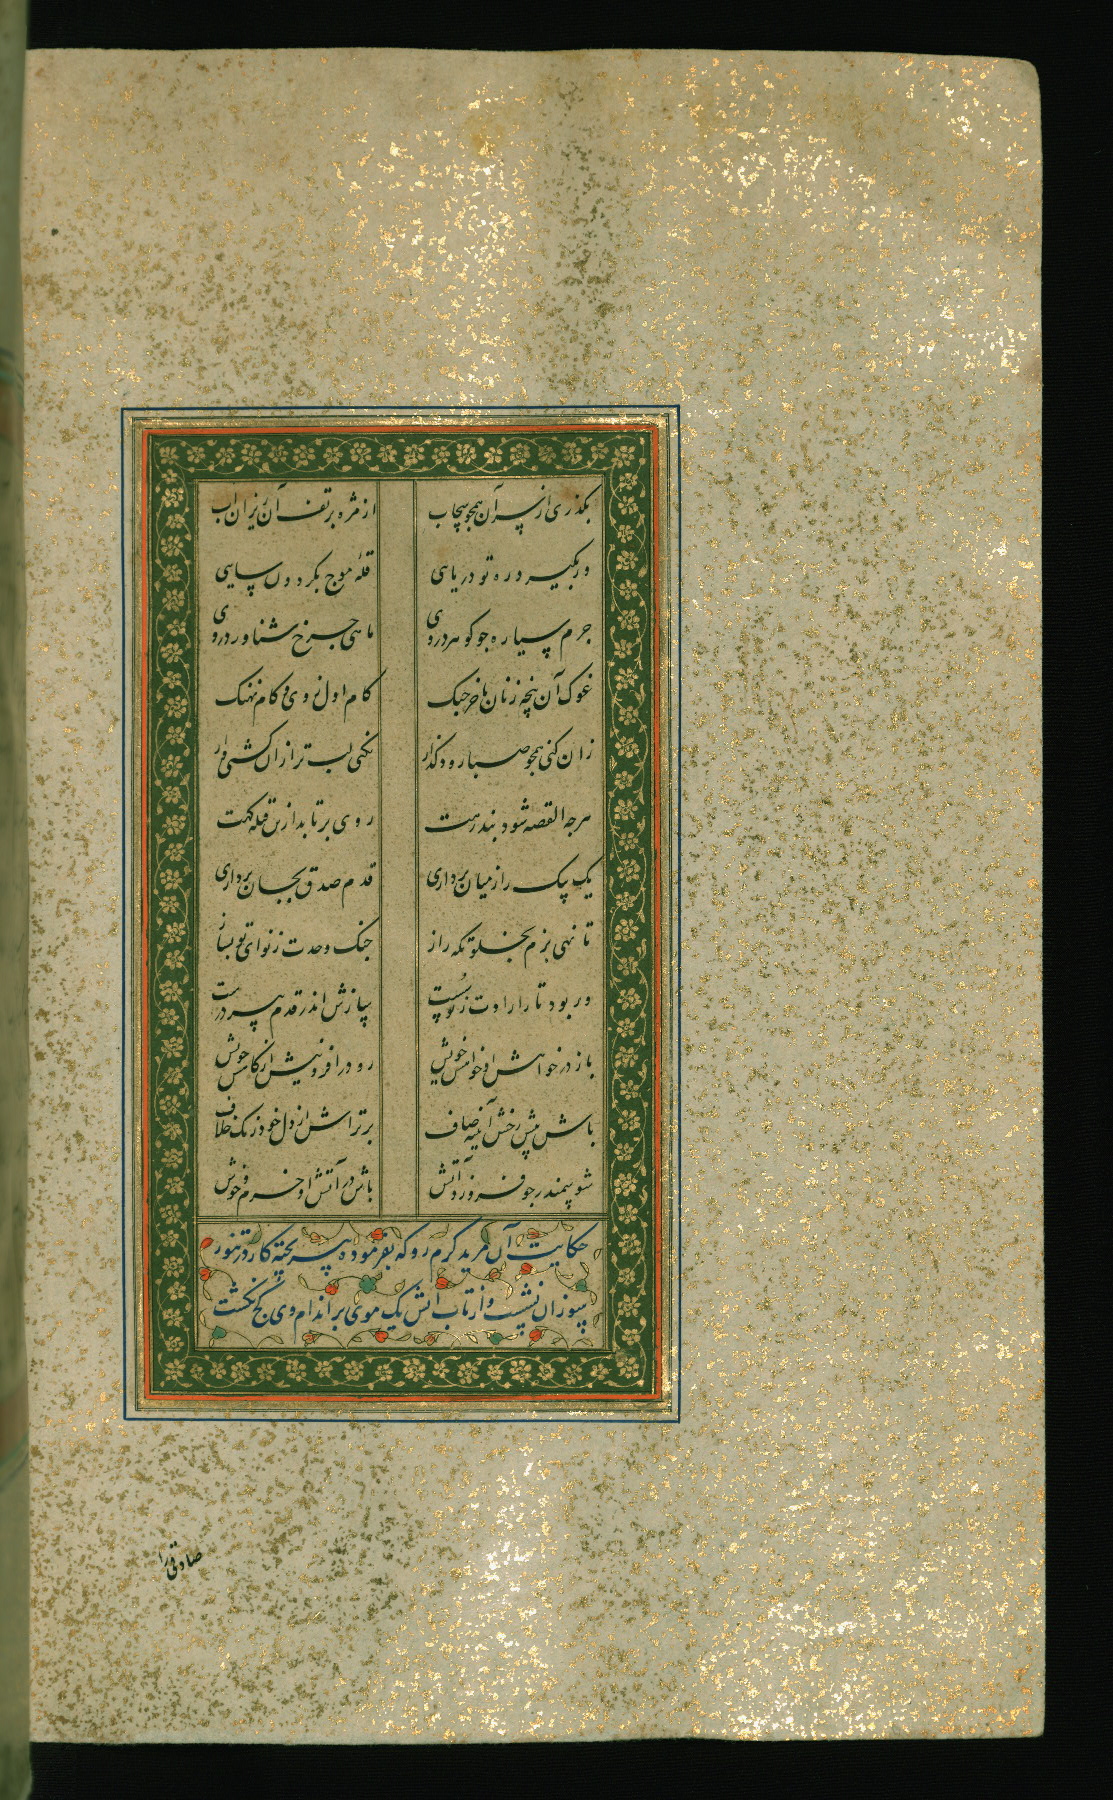 بگذری از سر آن همچو سحاب از مژه بر تف آن ریزان آب
ور بگیرد ره تو دریایی قلهٔ موج بگردون سایی
جرم سیاره چو گوهر در وی ماهی چرخ شناور در وی
غوک آن پنجه زنان با خرچنگ کام اول ز وی و کام نهنگ
زان کنی همچو صبا زود گذار نکنی لب تر ازان کشتی وار
هرچه القصه شود بند رهت روی برتابد ازین قبله گهت
یک بیک را ز میان برداری قدم صدق بجان برداری
تا نهی بزم بخلوتگه راز چنگ وحدت ز نوای تو بساز
ور بود تار ارادت ز تو سست بسپارش اندر قدم پیر درست
باز در خواهش او خواهش خویش رو در افزونیش از کاهش خویش
باش پیش رخش آیینهٔ صاف برتراش از دل خود زنگ خلاف
شو سمندر چو فروزد آتش باش در آتش او خرم و خوش
حکایت آن مرید گرم رو که بفرمودهٔ پیر پخته کار در تنور
سوزان نشست و از تاب آتش یک موی بر اندام وی کج نگشت
صادقی را